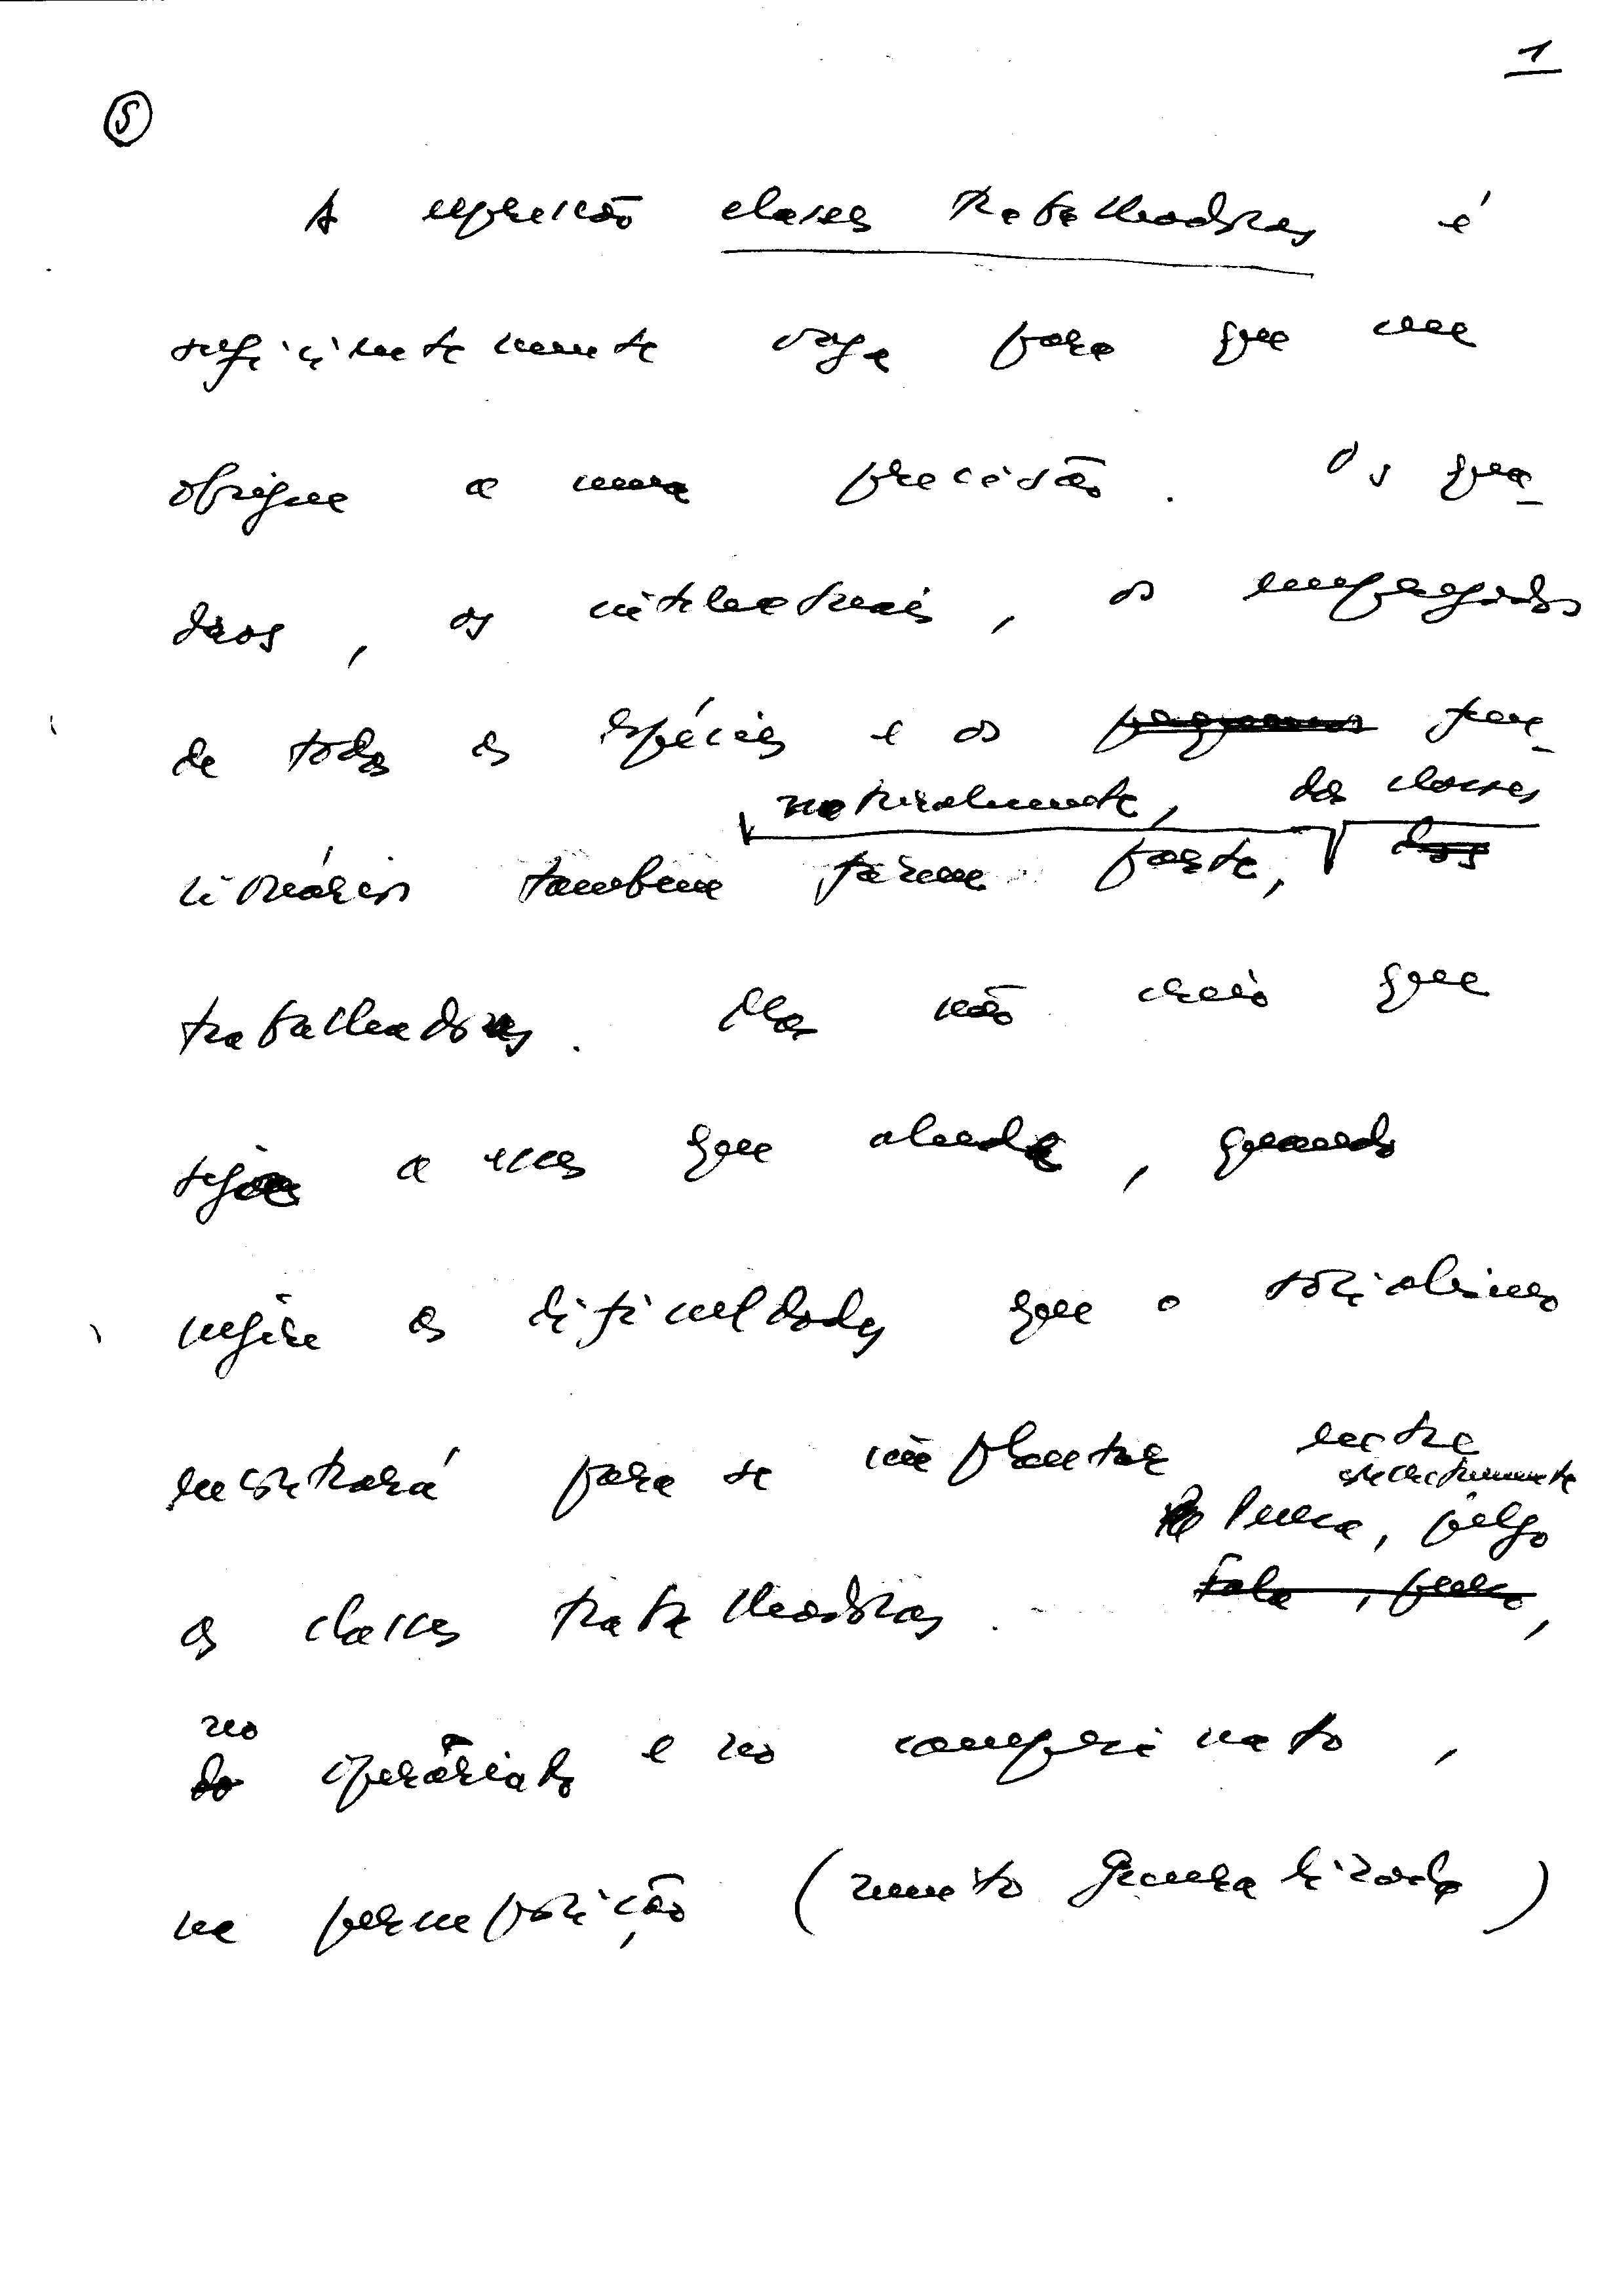 1
5
A expressão classes trabalhadoras é
suficientemente vaga para que me
obrigue a uma precisão. Os qua-
dros, os intelectuais, os empregados
de todas as espécies e os pequenos fun-
naturalmente, das classes
cionários também fazem parte, das
trabalhadoras. Mas não creio que
seja a essas que aluda, quando
refere as dificuldades que o socialismo
encontrará para se implantar entre
estritamente
Pensa, julgo
as classes trabalhadoras. Fala, julgo,
no
do operáriado e no campesinato,
na pressuposição (muito generalizada)